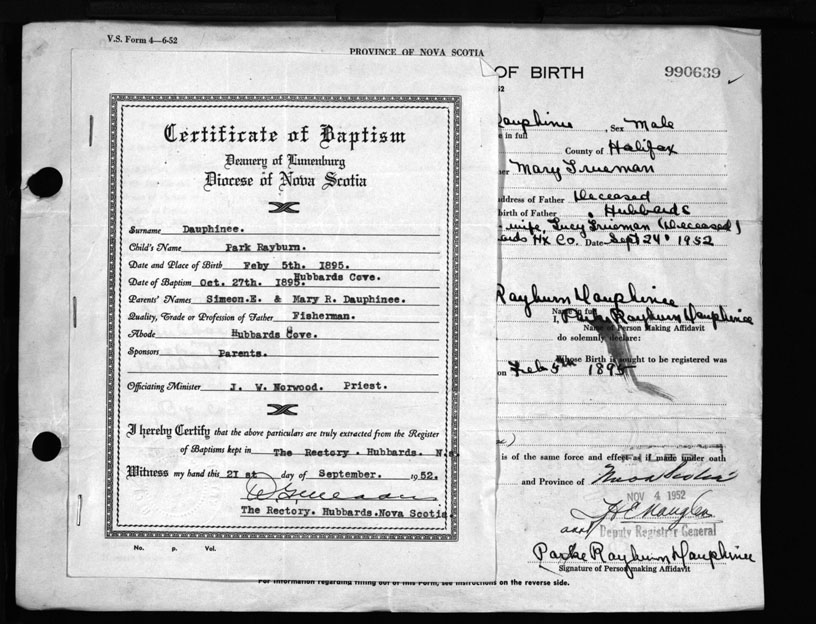 V.S. Form 4—6-52
PROVINCE OF NOVA SCOTIA
OF BIRTH
990639
52
Certificate of Baptism
Deanery of Lunenburg
Diocese of Nova Scotia
Surname Dauphinee.
Child's Name Park Rayburn.
Date and Place of Birth Feby 5th. 1895.
Hubbards Cove.
Date of Baptism Oct. 27th. 1895.
Parents' Names Simeon.E. & Mary R. Dauphinee.
Quality, Trade or Profession of Father Fisherman.
Abode Hubbards Cove.
Sponsors Parents.
Officiating Minister J. W. Norwood. Priest.
I hereby Certify that the above particulars are truly extracted from the Register
of Baptisms kept in The Rectory. Hubbards. N.s.
Witness my hand this 21 st day of September. 1952.
The Rectory. Hubbards.Nova Scotia.
No. p. Vol.
Dauphinee, Sex Male
in full
County of Halifax
Mary Trueman
address of Father Deceased
birth of Father Hubbards
wife, Lucy Trueman (Deceased)
Hx Co. Date Sept 24 1952
Rayburn Dauphinee
Name in full
I, Parke Rayburn Dauphinee
Name of Person Making Affidavit
do solemnly declare:
Whose Birth is sought to be registered was
on Feb 5th 1895
is of the same force and effect as if made under oath
and Province of Nova Scotia
NOV 4 1952
Deputy Registrar General
Parke Rayburn Dauphinee
Signature of Person making Affidavit
For information regarding filling out of this Form, see instructions on the reverse side.